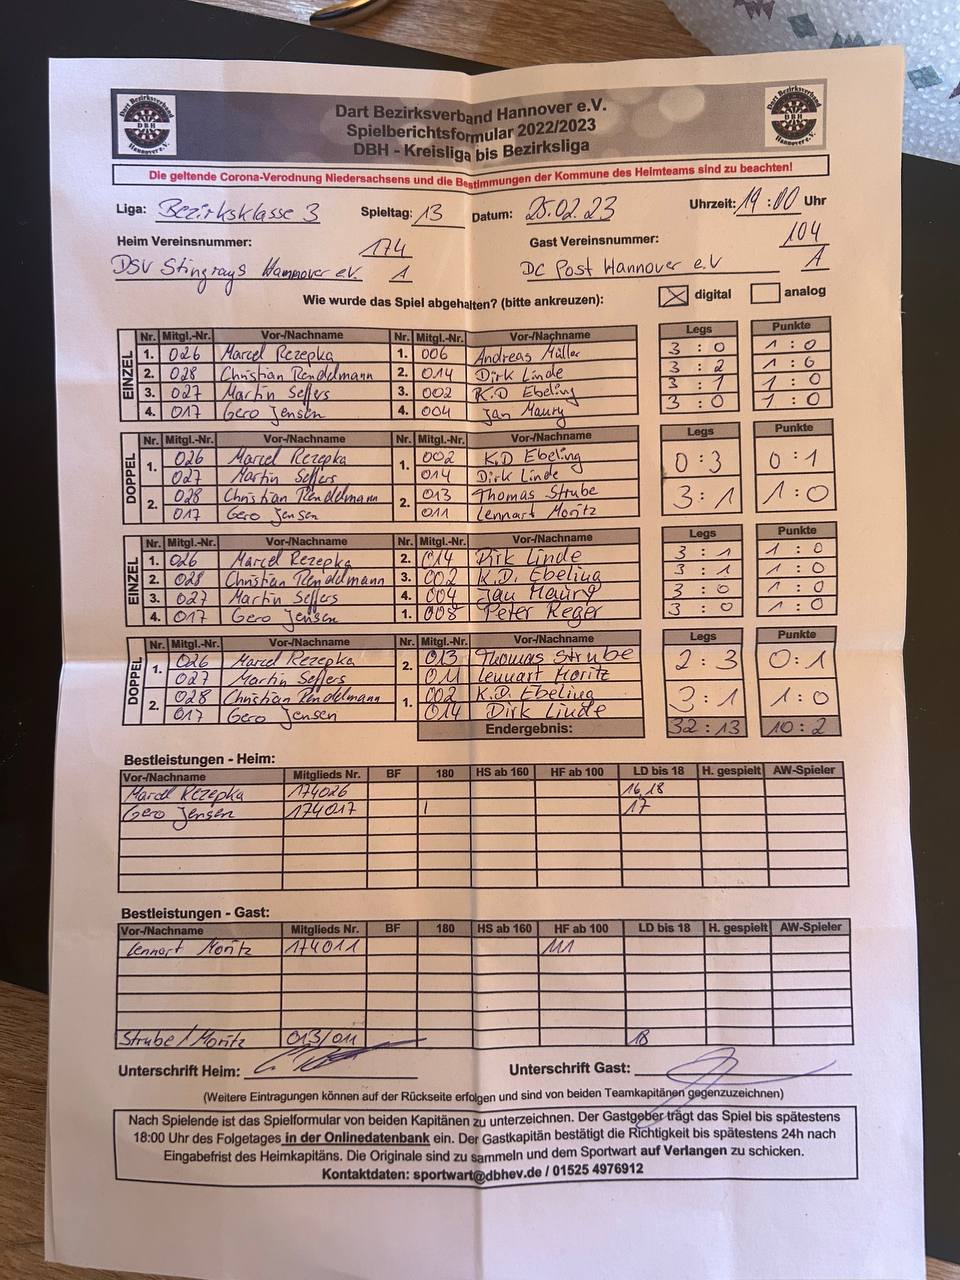 Dart Bezirksverband Hannover e.V.
Spielberichtsformular 2022/2023
DBH - Kreisliga bis Bezirksliga
Die geltende Corona-Verodnung Niedersachsens und die Bestimmungen der Kommune des Heimteams sind zu beachten!
Liga: Bezirksklasse 3 Spieltag: 13 Datum: 25.02.23 Uhrzeit: 19:00 Uhr
Heim Vereinsnummer: 174 Gast Vereinsnummer: 104
DSV Stingrays Hannover e.V. 1 DC Post Hannover e.V 1
Wie wurde das Spiel abgehalten? (bitte ankreuzen): digital analog
EINZEL
Nr. Mitgl.-Nr. Vor-/Nachname Nr. Mitgl.-Nr. Vor-/Nachname Legs Punkte
1. 026 Marcel Rezepka 1. 006 Andreas Müller 3 : 0 1 : 0
2. 028 Christian Rendelmann 2. 014 Dirk Linde 3 : 2 1 : 0
3. 027 Martin Seffers 3. 002 K.D Ebeling 3 : 1 1 : 0
4. 017 Gero Jensen 4. 004 Jan Maury 3 : 0 1 : 0
DOPPEL
Nr. Mitgl.-Nr. Vor-/Nachname Nr. Mitgl.-Nr. Vor-/Nachname Legs Punkte
1. 026 Marcel Rezepka 1. 002 K.D Ebeling 0 : 3 0 : 1
027 Martin Seffers 014 Dirk Linde
2. 028 Christian Rendelmann 2. 013 Thomas Strube 3 : 1 1 : 0
017 Gero Jensen 011 Lennart Moritz
EINZEL
Nr. Mitgl.-Nr. Vor-/Nachname Nr. Mitgl.-Nr. Vor-/Nachname Legs Punkte
1. 026 Marcel Rezepka 2. 014 Dirk Linde 3 : 1 1 : 0
2. 028 Christian Rendelmann 3. 002 K.D. Ebeling 3 : 1 1 : 0
3. 027 Martin Seffers 4. 004 Jan Maury 3 : 0 1 : 0
4. 017 Gero Jensen 1. 008 Peter Reger 3 : 0 1 : 0
DOPPEL
Nr. Mitgl.-Nr. Vor-/Nachname Nr. Mitgl.-Nr. Vor-/Nachname Legs Punkte
1. 026 Marcel Rezepka 2. 013 Thomas Strube 2 : 3 0 : 1
027 Martin Seffers 011 Lennart Moritz
2. 028 Christian Rendelmann 1. 002 K.D. Ebeling 3 : 1 1 : 0
017 Gero Jensen 014 Dirk Linde
Endergebnis: 32 : 13 10 : 2
Bestleistungen - Heim:
Vor-/Nachname Mitglieds Nr. BF 180 HS ab 160 HF ab 100 LD bis 18 H. gespielt AW-Spieler
Marcel Rezepka 174026 16,18
Gero Jensen 174017 1 17
Bestleistungen - Gast:
Vor-/Nachname Mitglieds Nr. BF 180 HS ab 160 HF ab 100 LD bis 18 H. gespielt AW-Spieler
Lennart Moritz 174011 111
Strube/Moritz 013/011 18
Unterschrift Heim: Unterschrift Gast:
(Weitere Eintragungen können auf der Rückseite erfolgen und sind von beiden Teamkapitänen gegenzuzeichnen)
Nach Spielende ist das Spielformular von beiden Kapitänen zu unterzeichnen. Der Gastgeber trägt das Spiel bis spätestens
18:00 Uhr des Folgetages in der Onlinedatenbank ein. Der Gastkapitän bestätigt die Richtigkeit bis spätestens 24h nach
Eingabefrist des Heimkapitäns. Die Originale sind zu sammeln und dem Sportwart auf Verlangen zu schicken.
Kontaktdaten: sportwart@dbhev.de / 01525 4976912